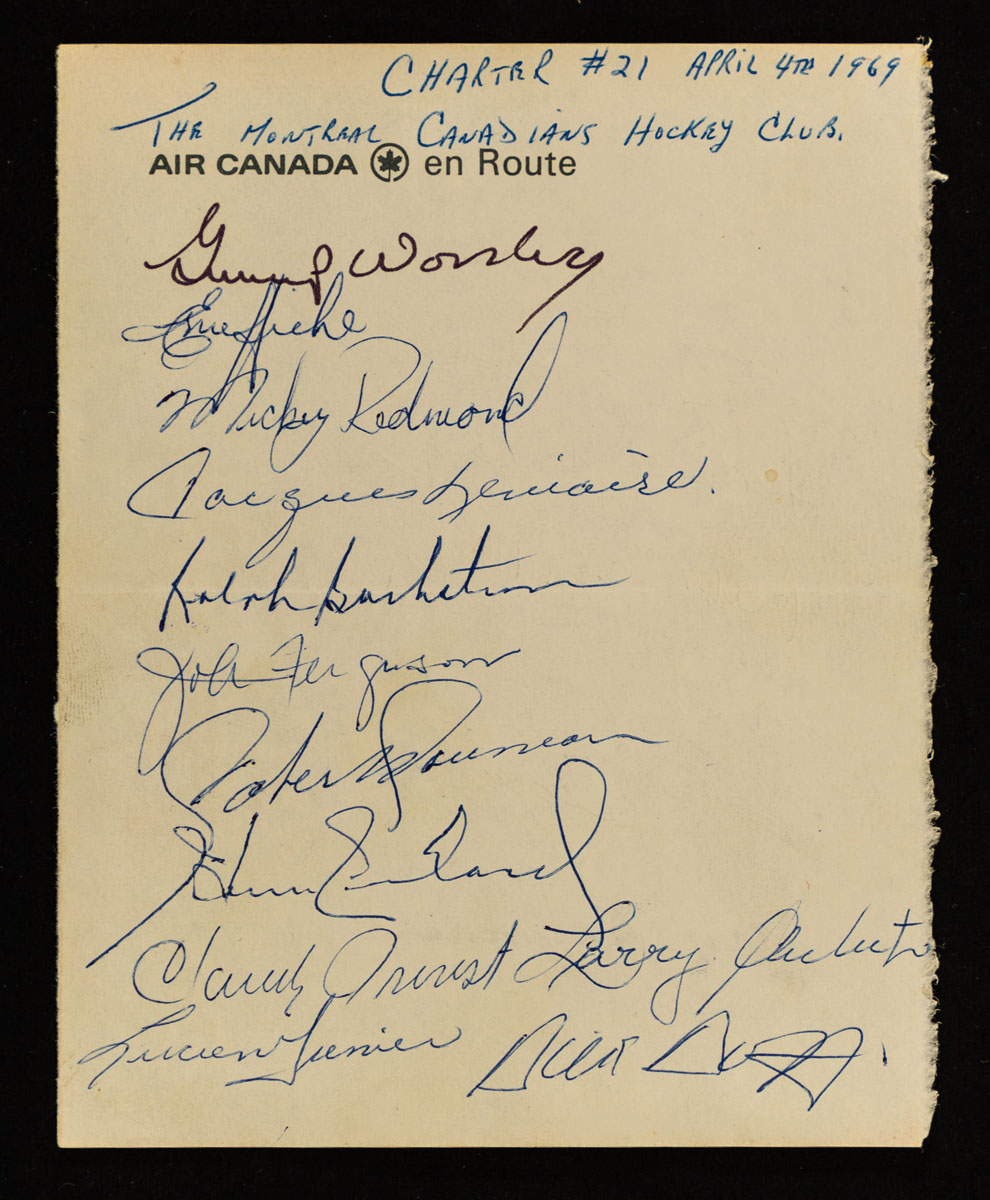 CHARTER #21 APRIL 4TH 1969
THE MONTREAL CANADIANS HOCKEY CLUB.
AIR CANADA en Route
Gump Worsley
Ernie Hicke
Mickey Redmond
Jacques Lemaire.
Ralph Backstrom
John Ferguson
Robert Rousseau
Claude Provost Larry
Lucien Grenier Dick Duff